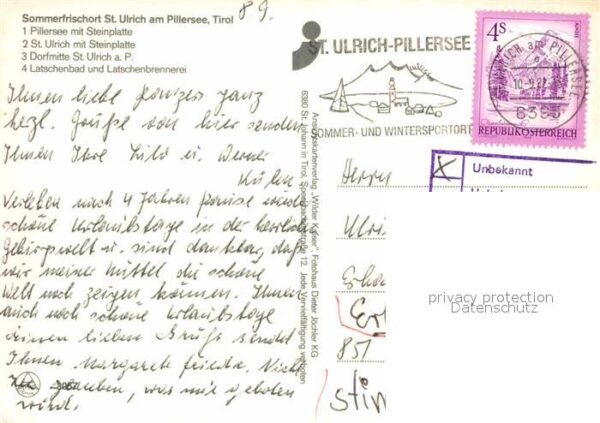 Sommerfrischort St. Ulrich am Pillersee, Tirol
1 Pillersee mit Steinplatte
2 St. Ulrich mit Steinplatte
3 Dorfmitte St. Ulrich a. P.
4 Latschenbad und Latschenbrennerei
8 9.
Ihnen liebe ganz
herzl. Grüße von hier senden
Ihnen Ihre u. Werner
Verleben nach 4 Jahren
schöne Urlaubstage in der
Gebirgswelt u. sind dankbar, daß
wir meiner Mutter die schöne
Welt noch zeigen können. Ihnen
auch noch schöne Urlaubstage
einen lieben Gruß sendet
Ihnen Margarete
zu glauben, was mir geboten
wird.
3067
Ansichtskartenverlag "Wilder Kaiser" Fotohaus Dieter Jöchler KG
6380 St. Johann in Tirol, Speckbacherstraße 12. Jede Vervielfältigung verboten
ST. ULRICH-PILLERSEE
SOMMER- UND WINTERSPORTORT
4S
REPUBLIK ÖSTERREICH
ULRICH am PILLERSEE
6393
X Unbekannt
Herrn
Ulri
851
privacy protection
Datenschutz